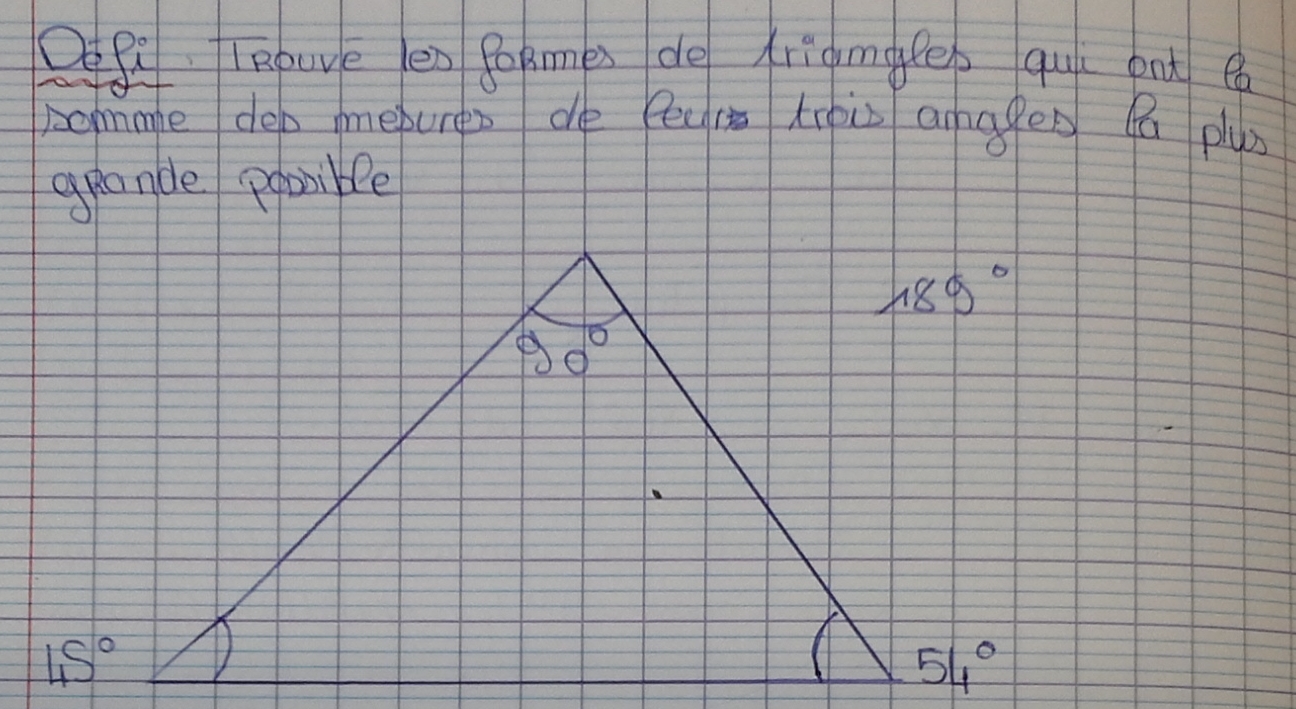 Défi. Trouve les formes de triangles qui ont la
somme des mesures de leurs trois angles la plus
grande possible
189°
90°
45°
54°